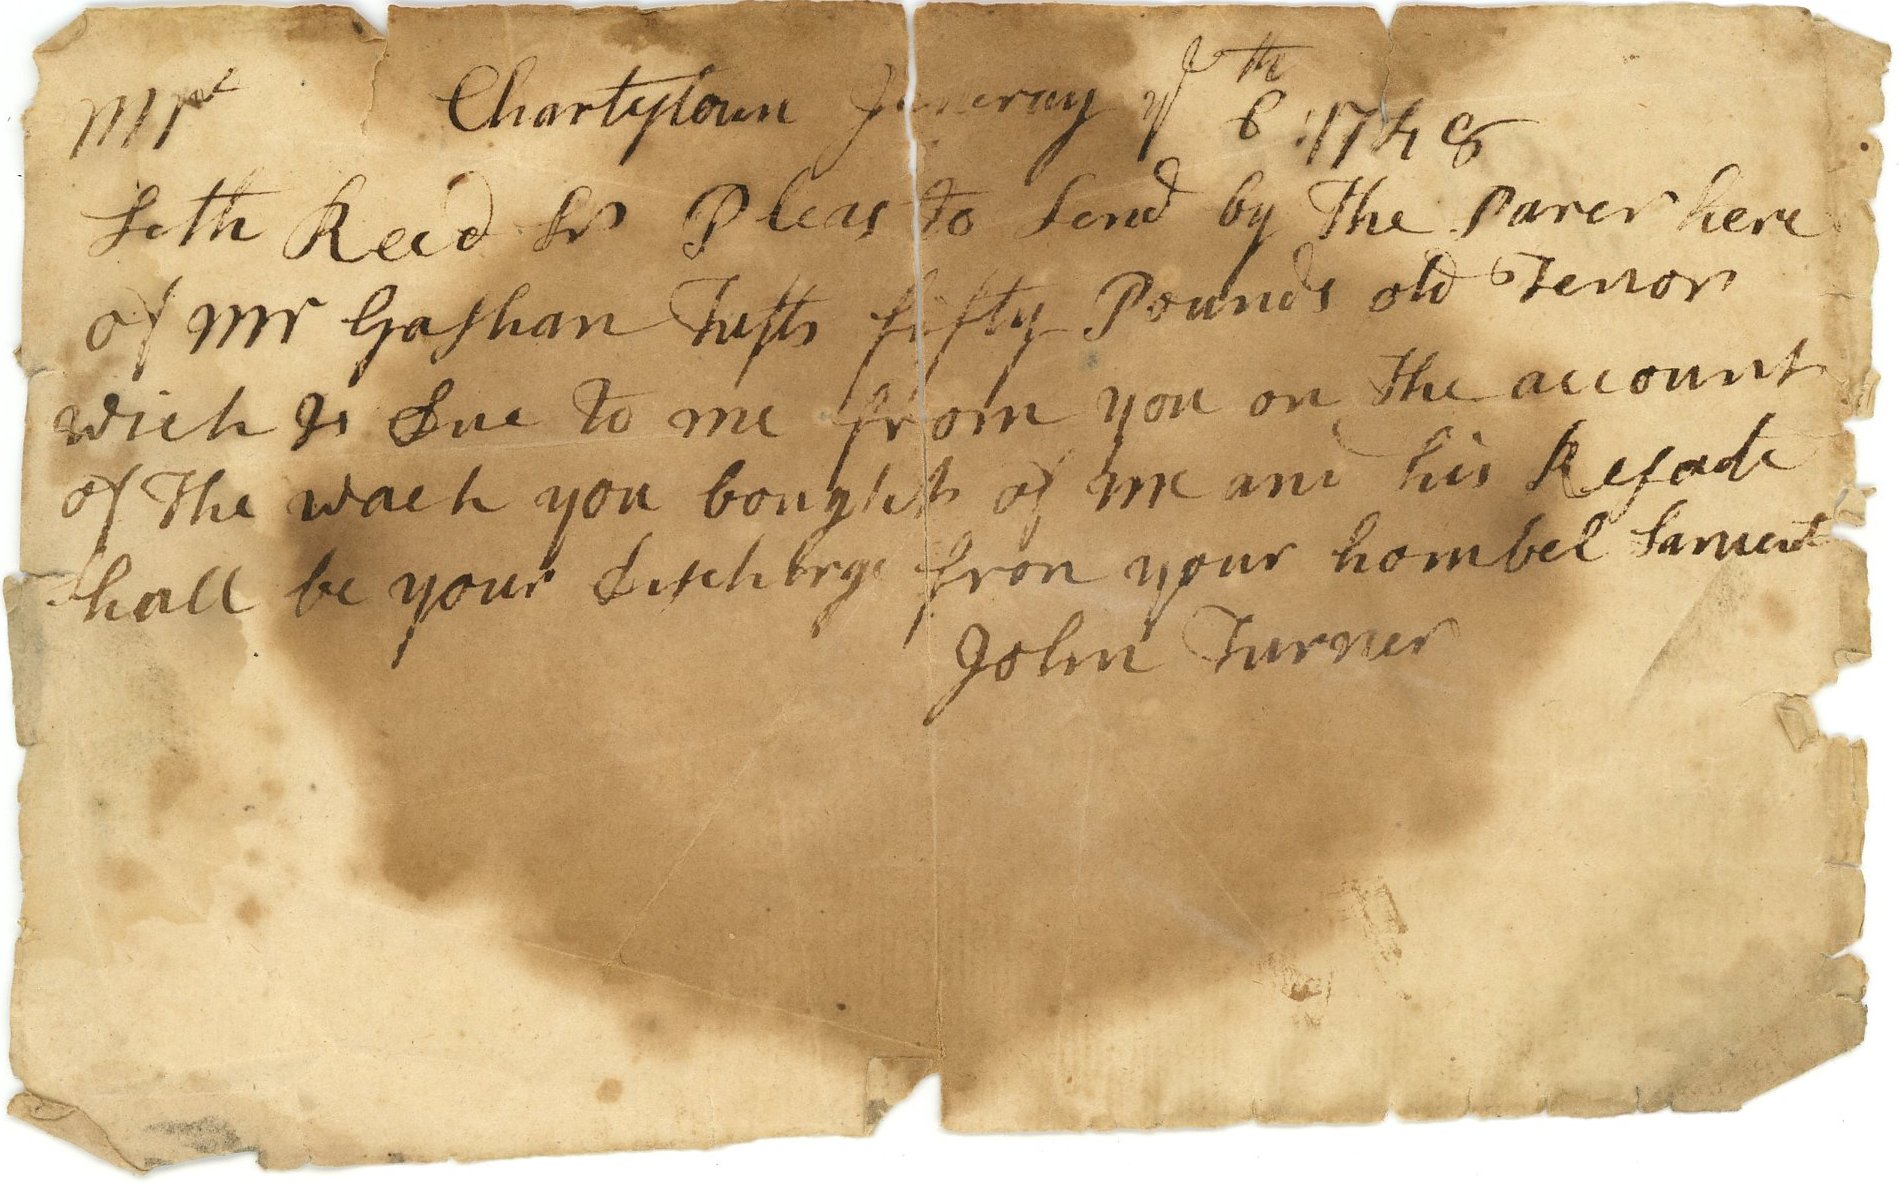 Mr Chartystown Jeneray ye 6th 1748
Seth Reed Sr Pleas to Send by The Barer here
of Mr Gashan Tufts fifty Pounds old Tenor
wich Is Due to me from you on The account
of The wach you bought of me and his Resate
shall be your Discharge from your hombel Sarvent
John Turner